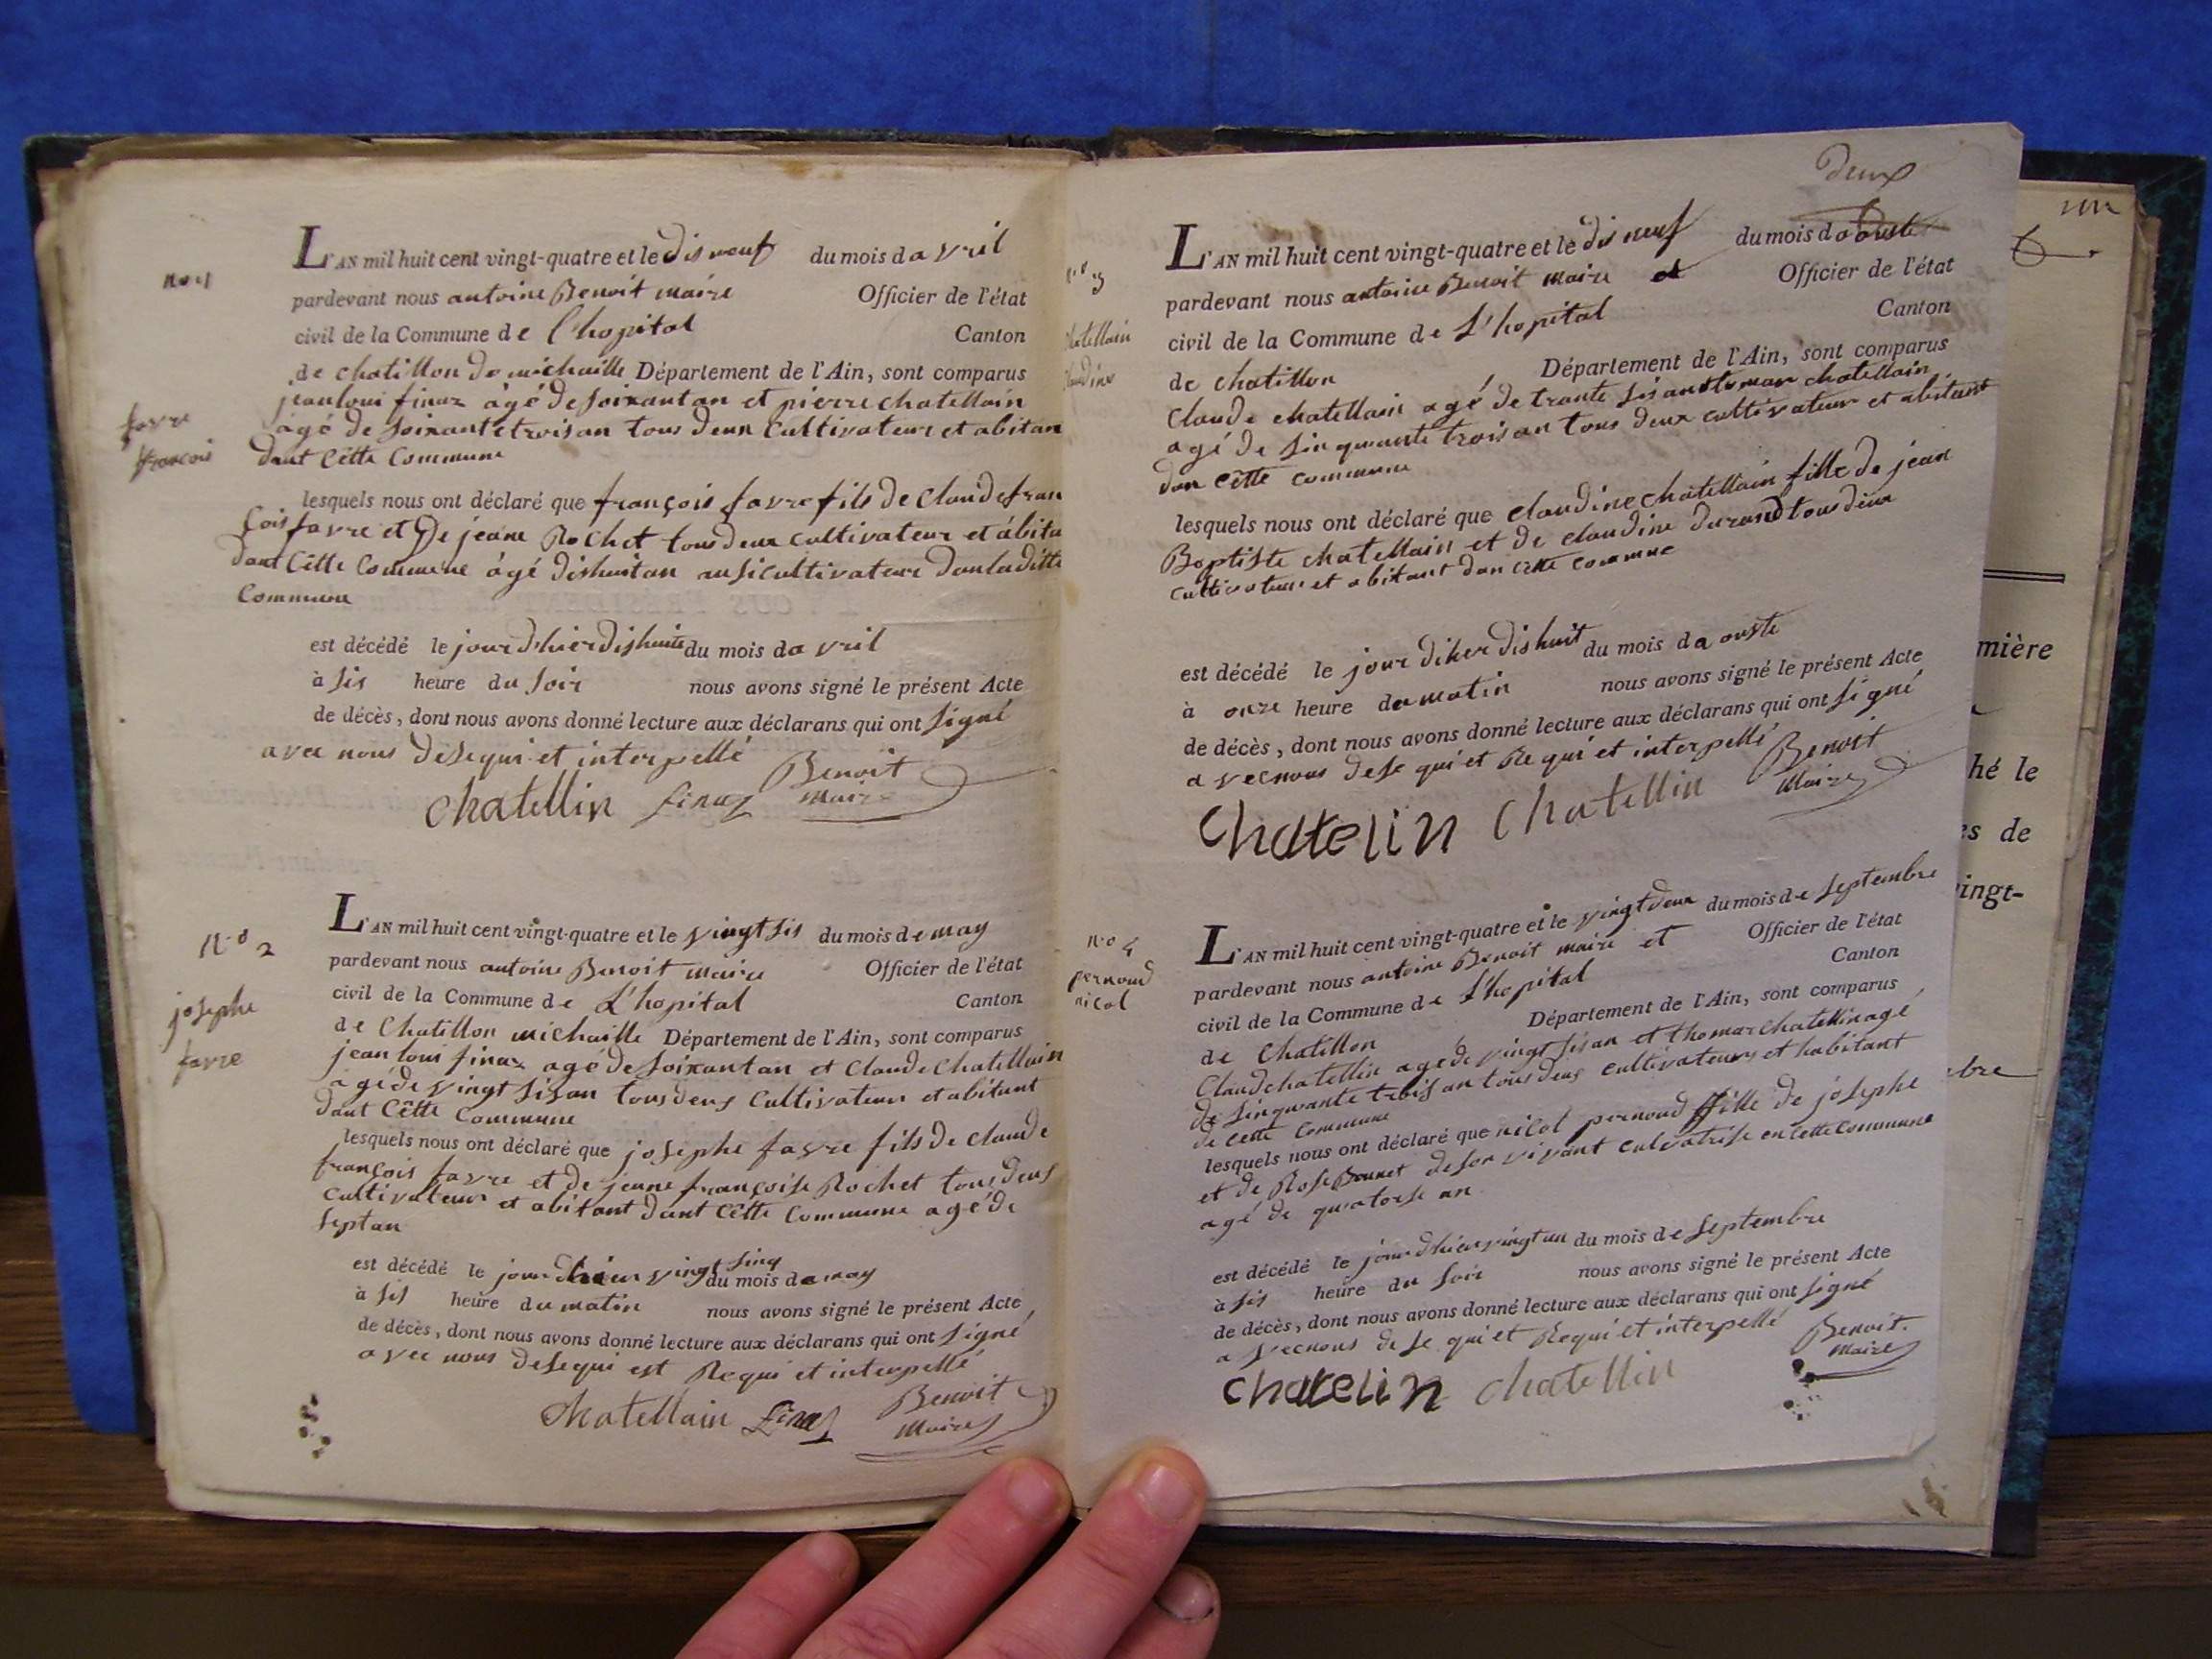 no 1
L'AN mil huit cent vingt-quatre et le dis neuf du mois d avril
pardevant nous antoine Benoit maire Officier de l'état
civil de la Commune de l'hopital Canton
de chatillon de michaille Département de l'Ain, sont comparus
jean loui finaz àgé de soixantan et pierre chatellain
àgé de soixantetroisan tous deux Cultivateur et abitan
dant Cètte Commune
favre
françois
lesquels nous ont déclaré que françois favre fils de Claude fran
çois favre et De jeane Rochet tous deux cultivateur et àbita
dant Cètte Commune àgé dishuitan ausi cultivateur dan laditte
Commune
est décédé le jour d'hier dishuite du mois d avril
à sis heure du soir nous avons signé le présent Acte
de décès, dont nous avons donné lecture aux déclarans qui ont signé
avec nous desequi et interpellé
Benoit
Chatellin finaz maire
N° 2
josephe
favre
L'AN mil huit cent vingt-quatre et le vingt sis du mois de may
pardevant nous antoine Benoit maire Officier de l'état
civil de la Commune de L'hopital Canton
de Chatillon michaille Département de l'Ain, sont comparus
jean loui finaz agé de soixantan et Claude Chatellain
agé de vingt sisan tous deus Cultivateur et abitant
dant Cètte Commune
lesquels nous ont déclaré que josephe favre fils de claude
françois favre et de jeane françoise Rochet tous deus
cultivateur et abitant dant Cètte Commune agé de
septan
est décédé le jour dhier vingt sinq du mois de may
à sis heure du matin nous avons signé le présent Acte
de décès, dont nous avons donné lecture aux déclarans qui ont signé
avec nous desequi est Requi et interpellé
Benoit
Chatellain finaz maire
deux
n° 3
Chatellain
Claudine
L'AN mil huit cent vingt-quatre et le dis neuf du mois d aouste
pardevant nous antoine Benoit maire et Officier de l'état
civil de la Commune de L'hopital Canton
de chatillon Département de l'Ain, sont comparus
Claude chatellain agé de trante sis an et tomas chatellain
agé de sinquante trois an tous deux cultivateur et abitant
dan cètte commune
lesquels nous ont déclaré que claudine chatellain fille de jean
Baptiste chatellain et de claudine durand tous deux
cultivateur et abitant dan cètte commune
est décédé le jour diher dishuit du mois d aouste
à onze heure du matin nous avons signé le présent Acte
de décès, dont nous avons donné lecture aux déclarans qui ont signé
avecnous dese qui et Requi et interpellé
Benoit
maire
Chatelin Chatellin
n° 4
pernoud
nicol
L'AN mil huit cent vingt-quatre et le vingt deux du mois de septembre
pardevant nous antoine Benoit maire et Officier de l'état
civil de la Commune de L'hopital Canton
de Chatillon Département de l'Ain, sont comparus
Claud chatellin agé de vingt sis an et thomas chatellin agé
de sinquante trois an tous deus cultivateurs et habitant
de cètte commune
lesquels nous ont déclaré que nicol pernoud fille de josephe
et de Rose Bonnet de son vivant culvatrise en cètte commune
agé de quatorse an
est décédé le jour dhier vingt un du mois de septembre
à sis heure du soir nous avons signé le présent Acte
de décès, dont nous avons donné lecture aux déclarans qui ont signé
avecnous dese qui et Requi et interpellé
Benoit
maire
Chatelin Chatellin
un
mière
hé le
es de
vingt-
bre